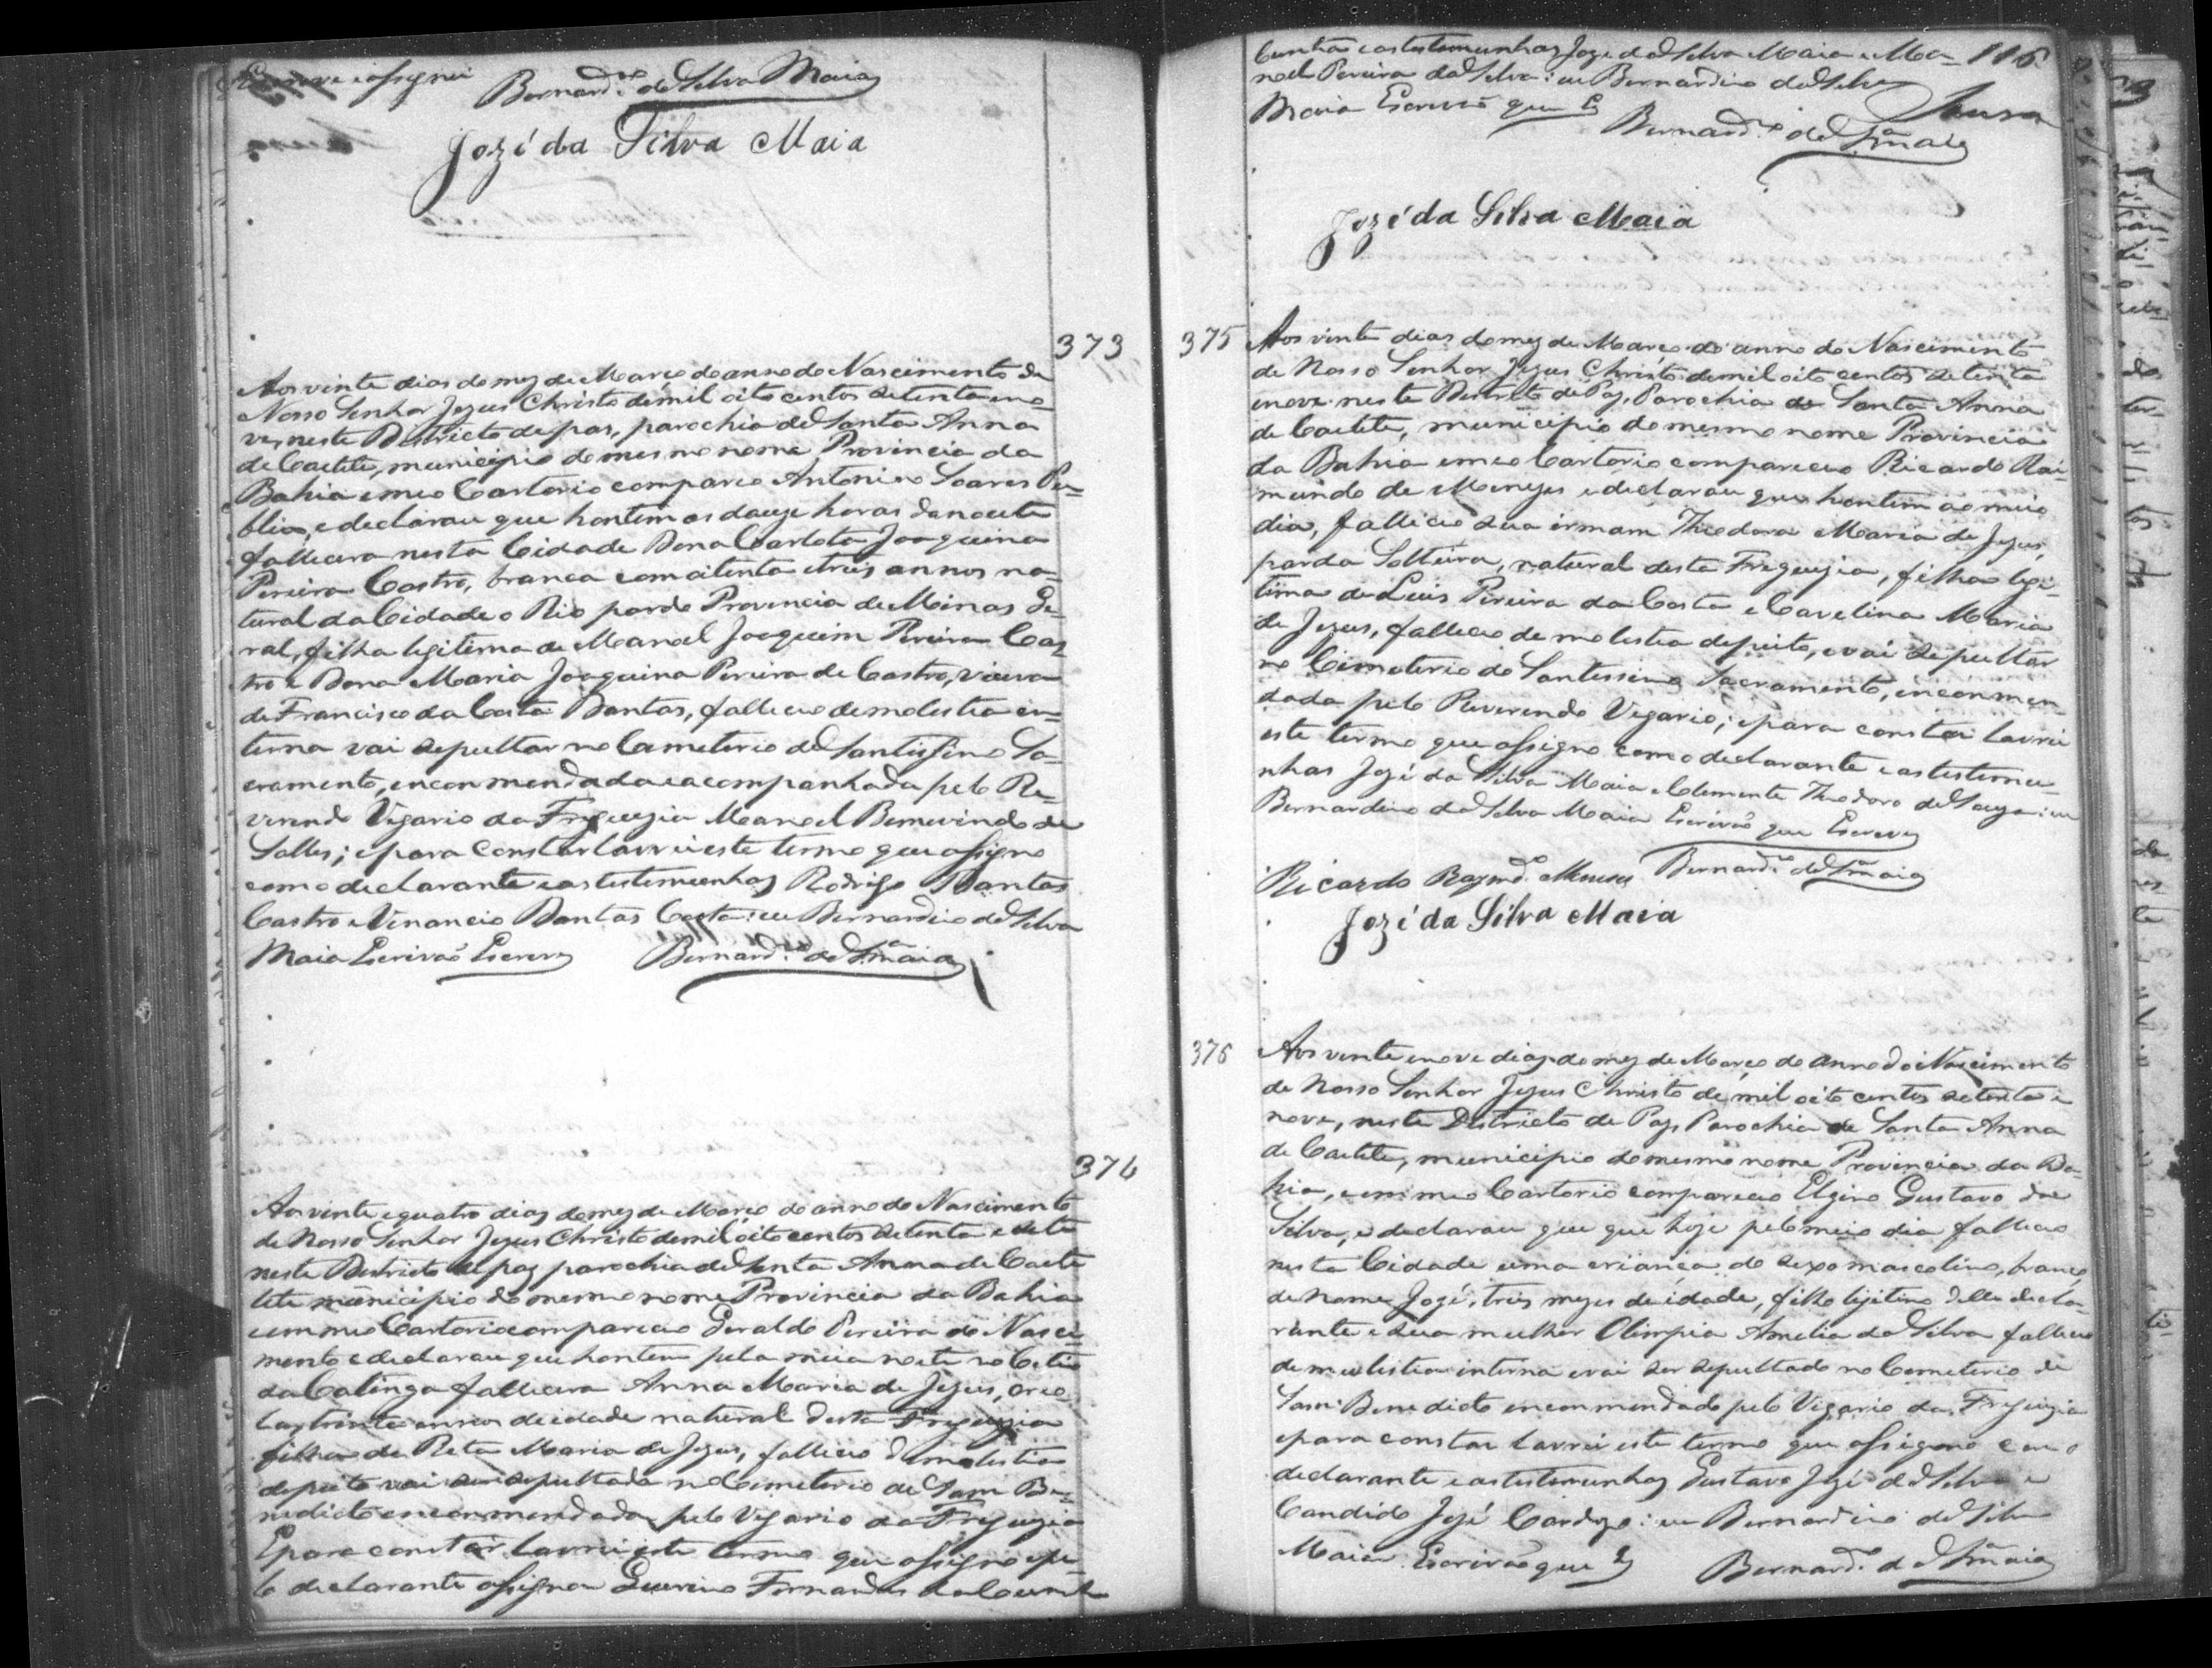 Escrevi e assignei Bernard.º da Silva Maia
José da Silva Maia
373
Aos vinte dias do mez de Março do anno do Nascimento de
Nosso Senhor Jezus Christo de mil oito centos setenta e no-
ve, neste Districto de pas, parochia de Santa Anna
de Caetité, municipio do mesmo nome, Provincia da
Bahia em meo Cartorio compareo Antonio Soares Pu-
blio, e declarou que hontem as douze horas da noute
fallecera nesta Cidade Dona Carlota Joaquina
Pereira Castro, branca com oitenta e tres annos na-
tural da Cidade o Rio pardo Provincia de Minas Ge-
ral, filha legitima de Manoel Joaquim Pereira Cas-
tro e Dona Maria Joaquina Pereira de Castro, viuva
de Francisco da Costa Dantas, falleceo de molestia in-
terna vai sepultar no Cemeterio do Santissimo Sa-
cramento, enconmendada e acompanhada pelo Re-
verendo Vigario da Freguezia Manoel Bemevindo de
Salles; e para constar lavrei este termo que assigno
com o declarante e as testemunhas Rodrigo Dantas
Castro e Venancio Dantas Costa: eu Bernardino da Silva
Maia Escrivaõ Escrevi Bernard.º da S. Maia
374
Aos vinte e quatro dias do mez de Março do anno do Nascimento
de Nosso Senhor Jezus Christo de mil oito centos setenta e
neste Districto de paz parochia de Santa Anna de Caete
tete municipio do mesmo nome Provincia da Bahia
e em meo Cartorio compareceo Geraldo Pereira do Nasci-
mento e declarou que hontem pela meia noite no Citio
da Catinga fallecera Anna Maria de Jezus, creo-
la, trinta annos de idade natural desta Freguezia
filha de Rita Maria de Jezus, falleceo de molestia
de peito vai ser sepultada no Cimeterio de Sam Be-
nedicto enconmendada pelo Vigario da Freguezia
E para constar lavrei este termo que assigno e pe-
lo declarante assigna Fernandes da Cunh
Cunha e as testemunhas Joze da Silva Maia e Ma- 116
noel Pereira da Silva: eu Bernardino da Silva
Maia Escrivaõ que E Sousa
Bernard.º da S. Maia
José da Silva Maia
375
Aos vinte dias do mez de Março do anno do Nascimento
de Nosso Senhor Jezus Christo de mil oito centos setenta
e nove neste Destrito de Paz, Parochia de Santa Anna
de Caetite, municipio do mesmo nome Provincia
da Bahia e meo Cartorio compareceo Ricardo Rai-
mundo de Menezes e declarou que hontem ao meio
dia, falleceo sua irmam Theodora Maria de Jezus,
parda Solteira, natural desta Freguezia, filha legi-
tima de Luis Pereira da Costa e Cavelina Maria
de Jezus, falleceo de molestia de peito, e vai sepultar
no Cimeterio do Santissimo Sacramento, enconmen-
dada pelo Reverendo Vigario; e para constar lavrei
este termo que assigno com o declarante e as testemu-
nhas José da Silva Maia e Clemente Theodoro de Souza: eu
Bernardino da Silva Maia Escrivaõ que Escrevy
Ricardo Raymd.º Menezes Bernard.º da S. Maia
José da Silva Maia
376
Aos vinte e nove dias do mez de Março do anno do Nascimento
de Nosso Senhor Jezus Christo de mil oito centos setenta e
nove, neste Districto de Paz, Parochia de Santa Anna
de Caetite, municipio do mesmo nome Provincia da Ba-
hia, e em meo Cartorio compareceo Elgino Gustavo da
Silva, e declarou que que hoje pelo meio dia falleceo
nesta Cidade uma criança do sexo mascolino, branco,
de nome José, tres mezes de idade, filho lejitimo delle decla-
rante e sua mulher Olimpia Amelia da Silva falleceo
de molestia interna e vai ser sepultado no Cemeterio de
Sam Benedicto enconmendado pelo Vigario da Freguezia
e para constar lavrei este termo que assigno com o
declarante e as testemunhas Gustavo José da Silva e
Candido José Cardozo: eu Bernardino da Silva
Maia Escrivaõ que E Bernard.º da S. Maia